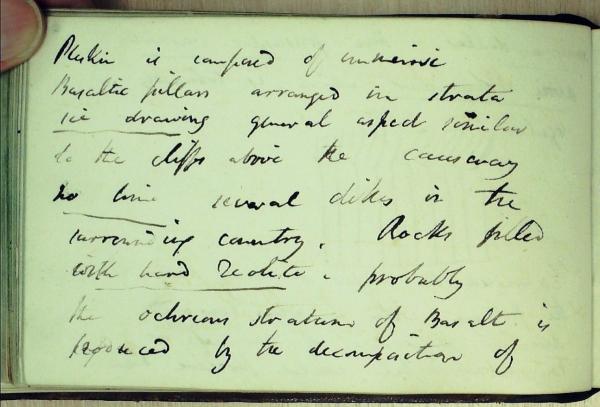 Pleskin is composed of immense
Basaltic pillars arranged in strata
see drawing general aspect similar
to the cliffs above the causeway
no time several dikes in the
surrounding country. Rocks filled
with hard Zeolite. probably
the ochreous stratum of Basalt is
produced by the decomposition of